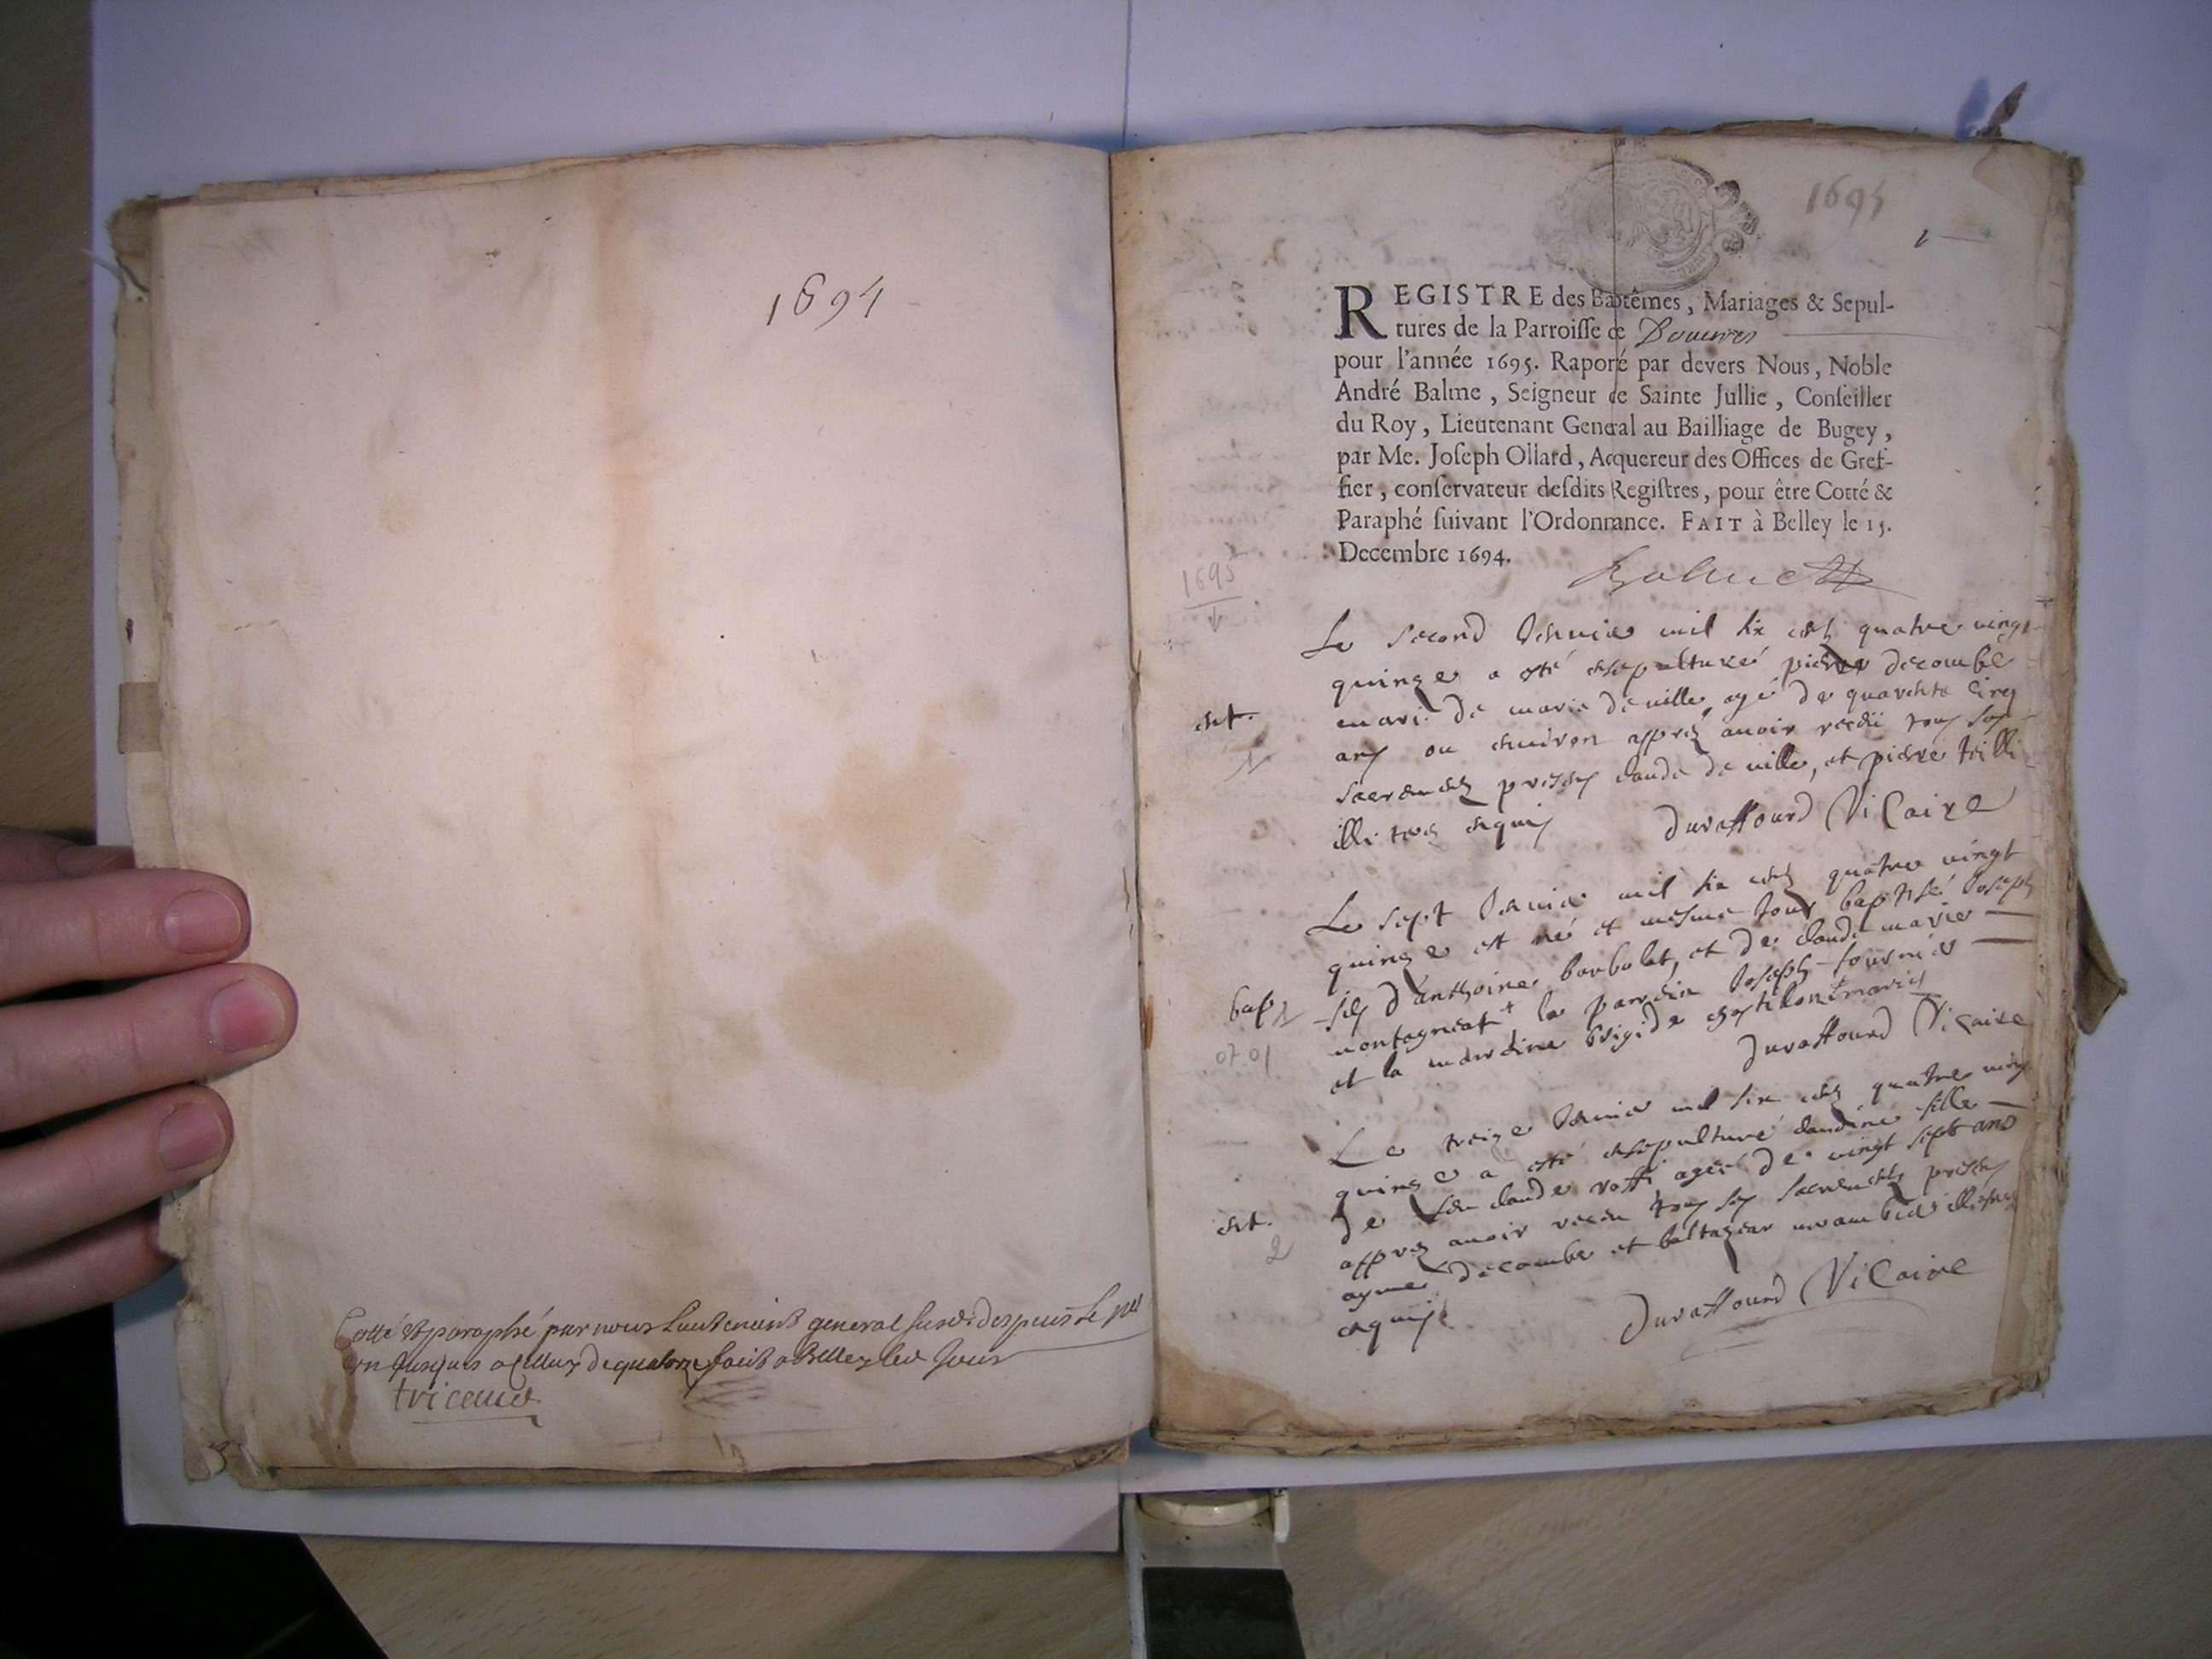 1694
Cotté et paraphé par nous Lieutenant general susdit despuis le pre
jusques a celluy de quatorze fait a Belley led jour
1695
1
REGISTRE des Baptêmes, Mariages & Sepul-
tures de la Parroisse de Douvres
pour l'année 1695. Raporé par devers Nous, Noble
André Balme, Seigneur de Sainte Jullie, Conseiller
du Roy, Lieutenant General au Bailliage de Bugey,
par Me. Joseph Ollard, Acquereur des Offices de Gref-
fier, conservateur desdits Registres, pour être Cotté &
Paraphé suivant l'Ordonnance. FAIT à Belley le 15.
Decembre 1694.
Balme
1695
Le second Janvier mil six cens quatre vingt
quinze a esté ensepulturé pierre decombe
mari de marie deville, agé de quarente cinq
ans ou environ appres avoir receü tous ses
ent.
1
sacremens presens claude de ville, et pierre
illiteres enquis Duraffourd Vicaire
Le sept Janvier mil six cens quatre vingt
quinze est né et mesme jour baptisé Joseph
fils d'anthoine barbolat, et de claude marie
bap 1
montagneat le parrein Joseph fournier
07-01
et la marreine brigide maries
Duraffourd Vicaire
Le treize Janvier mil six cens quatre vingt
quinze a esté ensepulturé claudine fille
de feu claude roffi agée de vingt sept ans
ent.
2
appres avoir receu tous ses sacremens presens
ayme decombe et baltazar illiteres
enquis
Duraffourd Vicaire